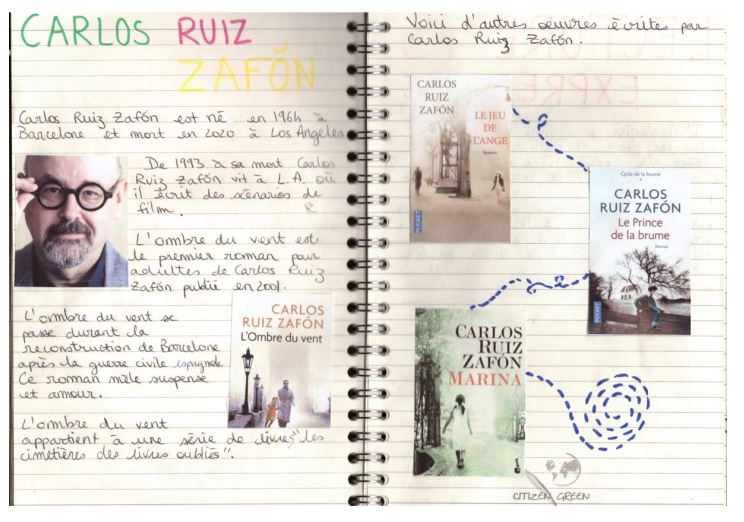 CARLOS RUIZ
ZAFÓN
Carlos Ruiz Zafón est né en 1964 à
Barcelone et mort en 2020 à Los Angeles
De 1993 à sa mort Carlos
Ruiz Zafón vit à L.A. où
il écrit des scénarios de
film.
L'ombre du vent est
le premier roman pour
adultes de Carlos Ruiz
Zafón publié en 2001.
L'ombre du vent se
passe durant la
reconstruction de Barcelone
après la guerre civile espagnole
Ce roman mêle suspense
et amour.
CARLOS
RUIZ ZAFÓN
L'Ombre du vent
L'ombre du vent
appartient à une série de livres "les
cimetières des livres oubliés".
Voici d'autres œuvres écrites par
Carlos Ruiz Zafón.
CARLOS
RUIZ
ZAFÓN
LE JEU
DE
L'ANGE
Roman
POCKET
Cycle de la brume
CARLOS
RUIZ ZAFÓN
Le Prince
de la brume
Roman
POCKET
CARLOS
RUIZ
ZAFÓN
MARINA
CITIZEN GREEN